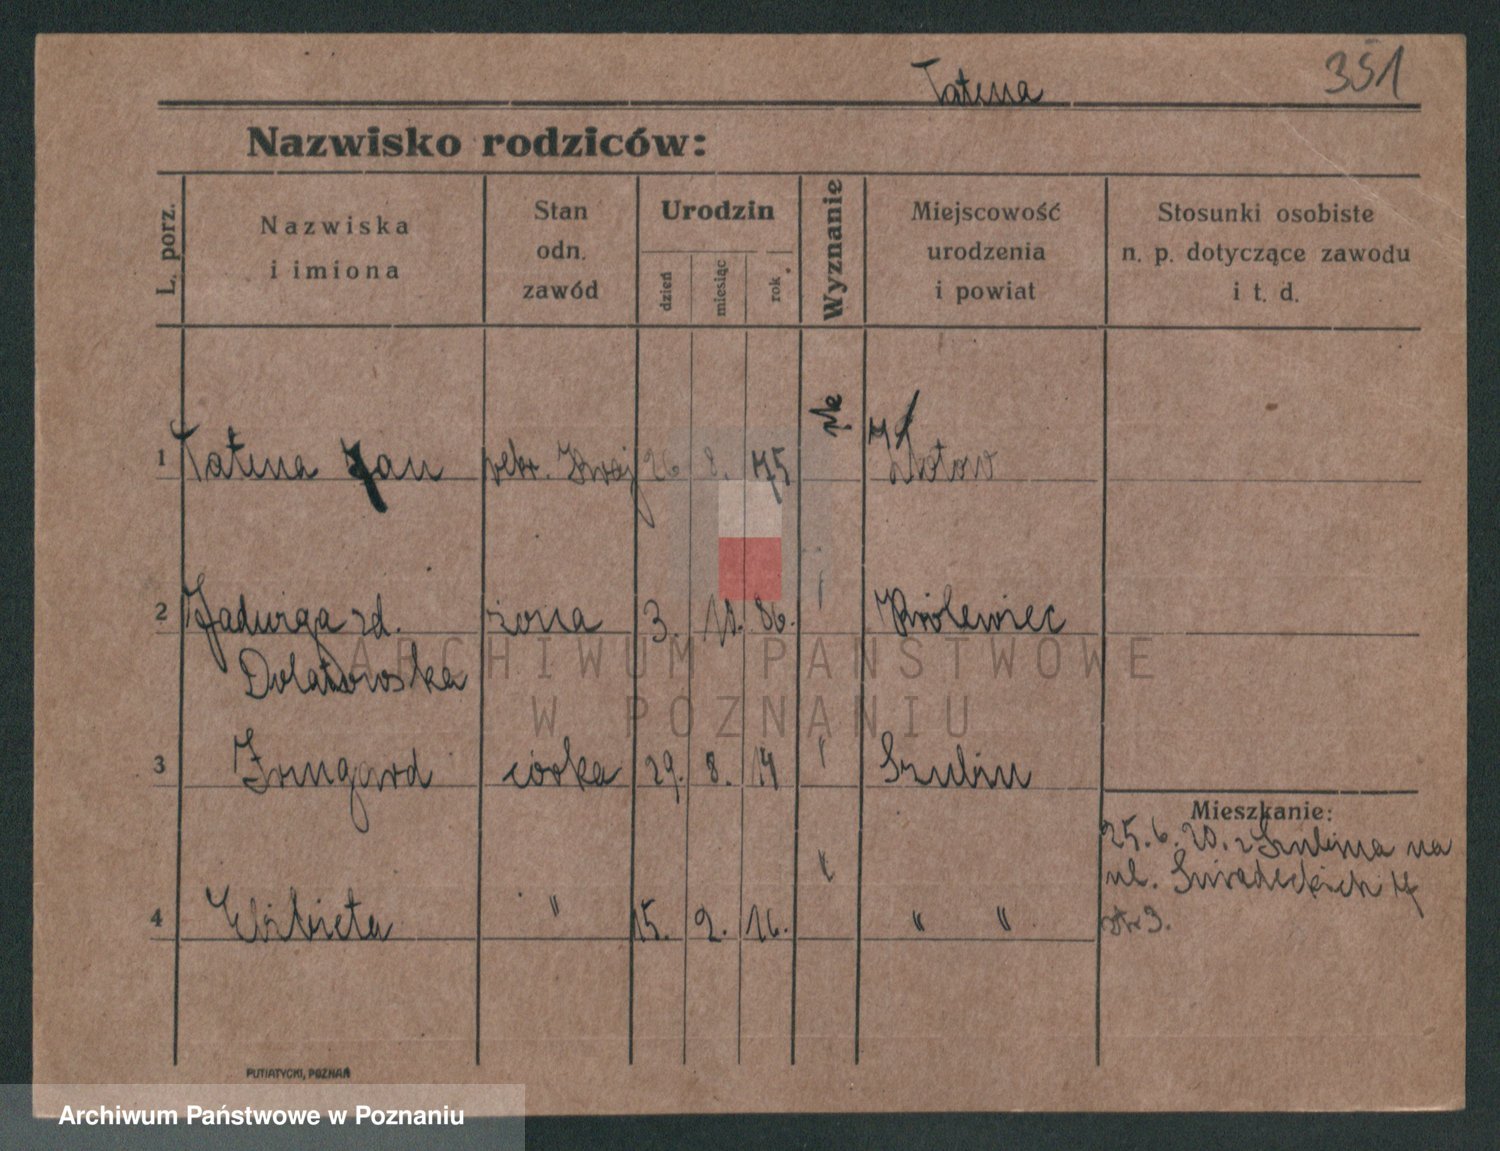 Tatena
351
Nazwisko rodziców:
L. porz.
Nazwiska
i imiona
Stan
odn.
zawód
Urodzin
dzień
miesiąc
rok
Wyznanie
Miejscowość
urodzenia
i powiat
Stosunki osobiste
n. p. dotyczące zawodu
i t. d.
1 Tatena Jan sekr. 26 8. 75 Złotow
2 Jadwiga zd. żona 3. 11. 86. " Królewiec
Dolatowska
3 Irmgard córka 29. 8. 14 " Szubin
Mieszkanie:
25. 6. 20. z Szubina na
ul. Śniadeckich
4 Elżbieta " 15. 2. 16. " " "
PUTIATYCKI, POZNAŃ
ARCHIWUM PAŃSTWOWE
W POZNANIU
Archiwum Państwowe w Poznaniu